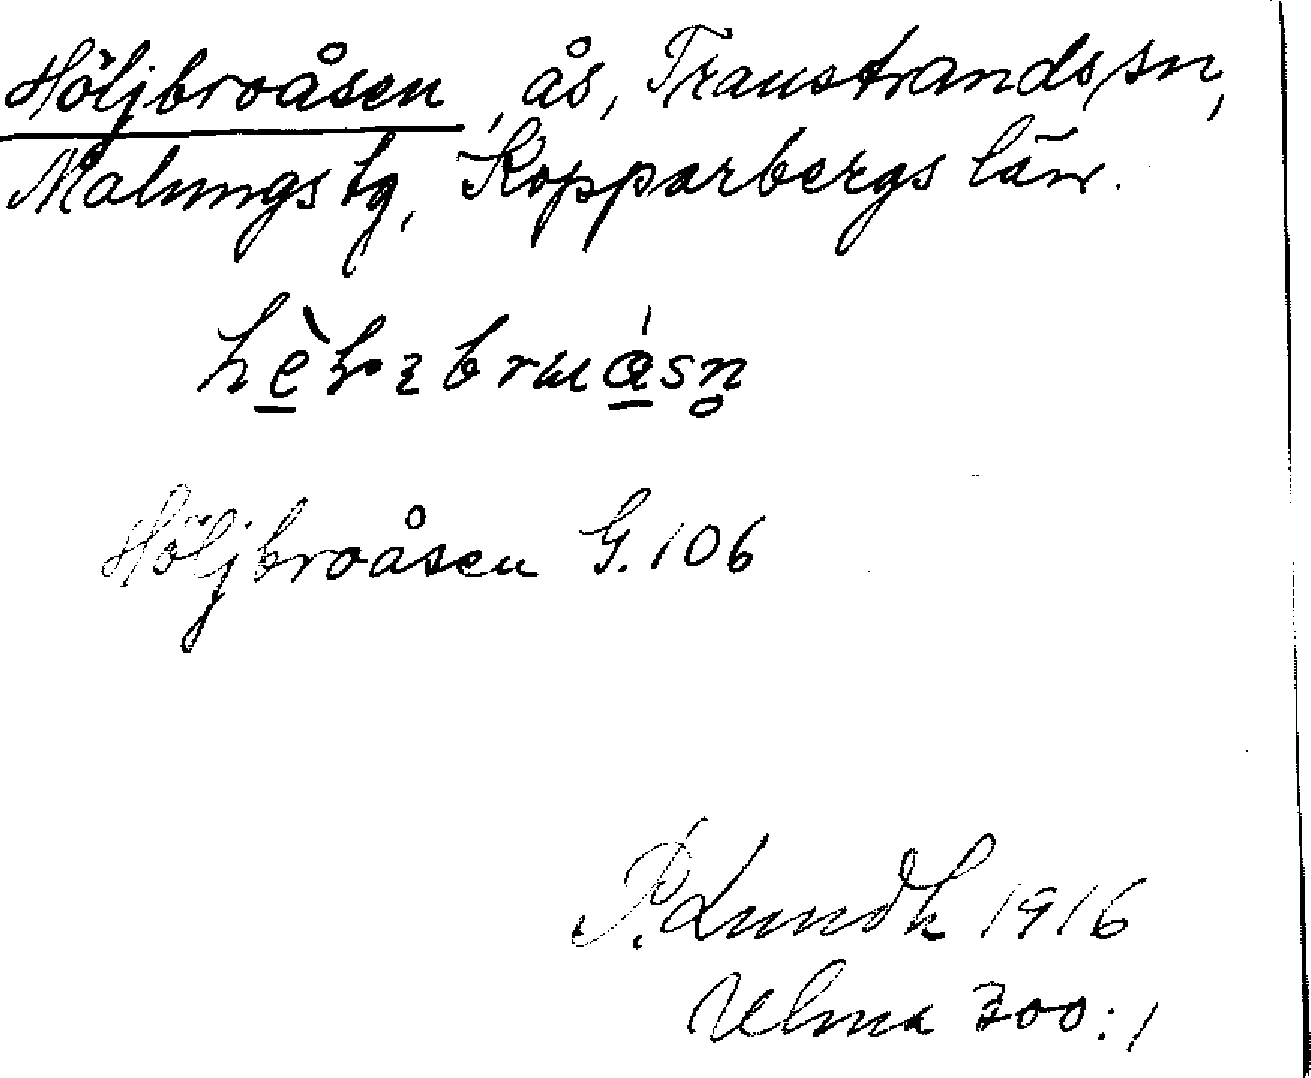 Höljbroåsen, ås, Transtrands sn,
Malungs tg, Kopparbergs län.
Höljbroåsen G. 106
1916
Ulma 300:1